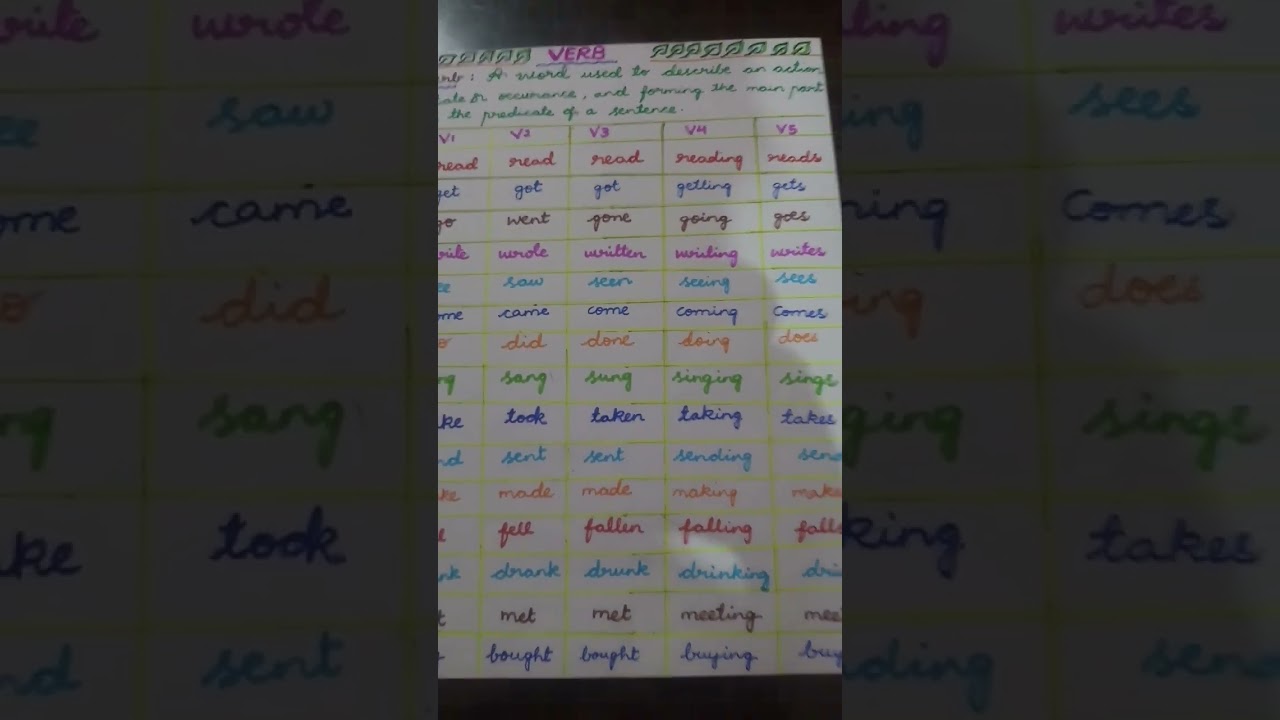 VERB
: A word used to describe an action
or occurance, and forming the main part
the predicate of a sentence.
V1 V2 V3 V4 V5
read read read reading reads
get got got getting gets
go went gone going goes
write wrote written writing writes
saw seen seeing sees
came come coming comes
did done doing does
sang sung singing sings
took taken taking takes
sent sent sending
made made making
fell fallen falling falls
drank drunk drinking
met met meeting
bought bought buying